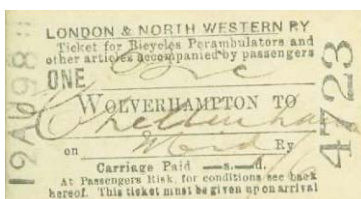 LONDON & NORTH WESTERN RY
Ticket for Bicycles Perambulators and
other articles accompanied by passengers
ONE
WOLVERHAMPTON TO
Cheltenham
on Mid Ry
Carriage Paid —s.—d.
At Passengers Risk, for conditions see back
hereof. This ticket must be given up on arrival
4723
12AU98